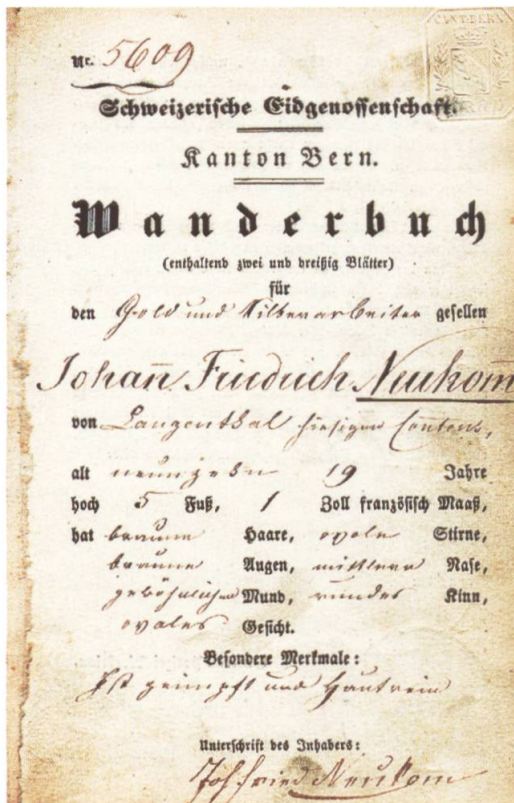 Nr. 5609
CANT: BERN
Schweizerische Eidgenossenschaft.
Kanton Bern.
Wanderbuch
(enthaltend zwei und dreißig Blätter)
für
den Gold und Silberarbeiter gesellen
Johan̅ Friedrich Neukom̅
von Langenthal hiesigen Cantons,
alt neunzehn 19 Jahre
hoch 5 Fuß, 1 Zoll französisch Maaß,
hat braune Haare, ovale Stirne,
braune Augen, mittlere Nase,
gewöhnlichen Mund, rundes Kinn,
ovales Gesicht.
Besondere Merkmale:
Ist geimpft und Hautrein
Unterschrift des Inhabers:
Joh Fried Neukom